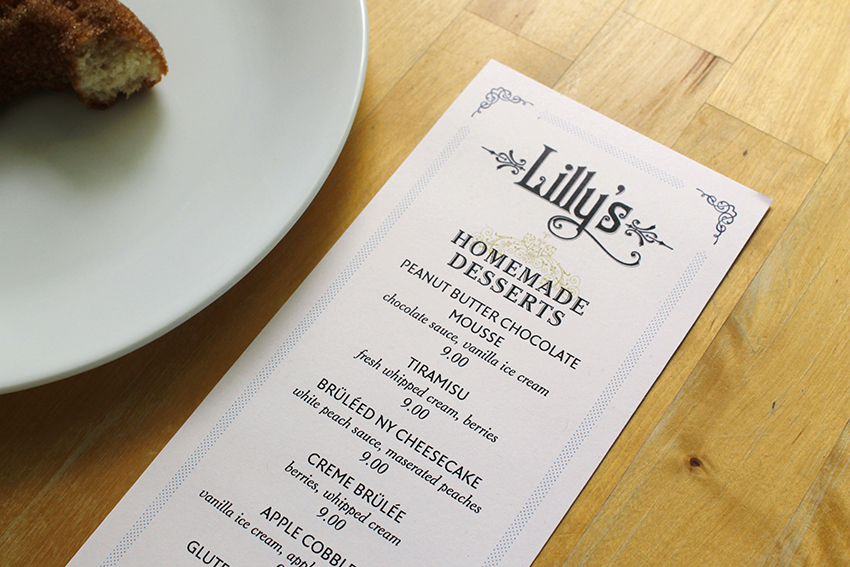 Lilly's
HOMEMADE
DESSERTS
PEANUT BUTTER CHOCOLATE
MOUSSE
chocolate sauce, vanilla ice cream
9.00
TIRAMISU
fresh whipped cream, berries
9.00
BRÜLÉED NY CHEESECAKE
white peach sauce, maserated peaches
9.00
CREME BRÜLÉE
berries, whipped cream
9.00
APPLE COBBLE
vanilla ice cream, app
9.00
GLUT